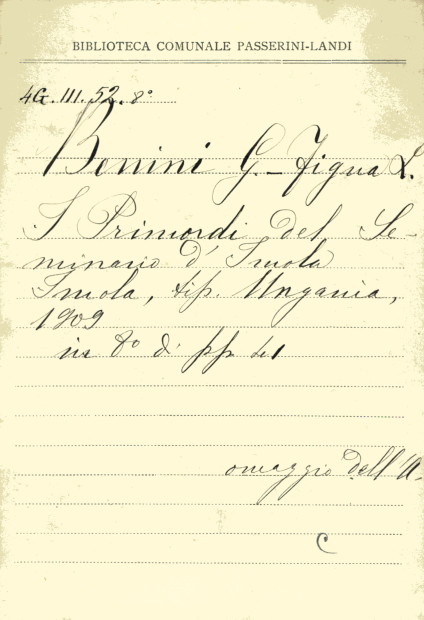 BIBLIOTECA COMUNALE PASSERINI-LANDI
4G. III. 52. 8°
Benini G. - Tigna L.
I Primordi del Se-
minario d'Imola
Imola, tip. Ungania,
1909
in 8° di pp 41
omaggio dell'A.
C